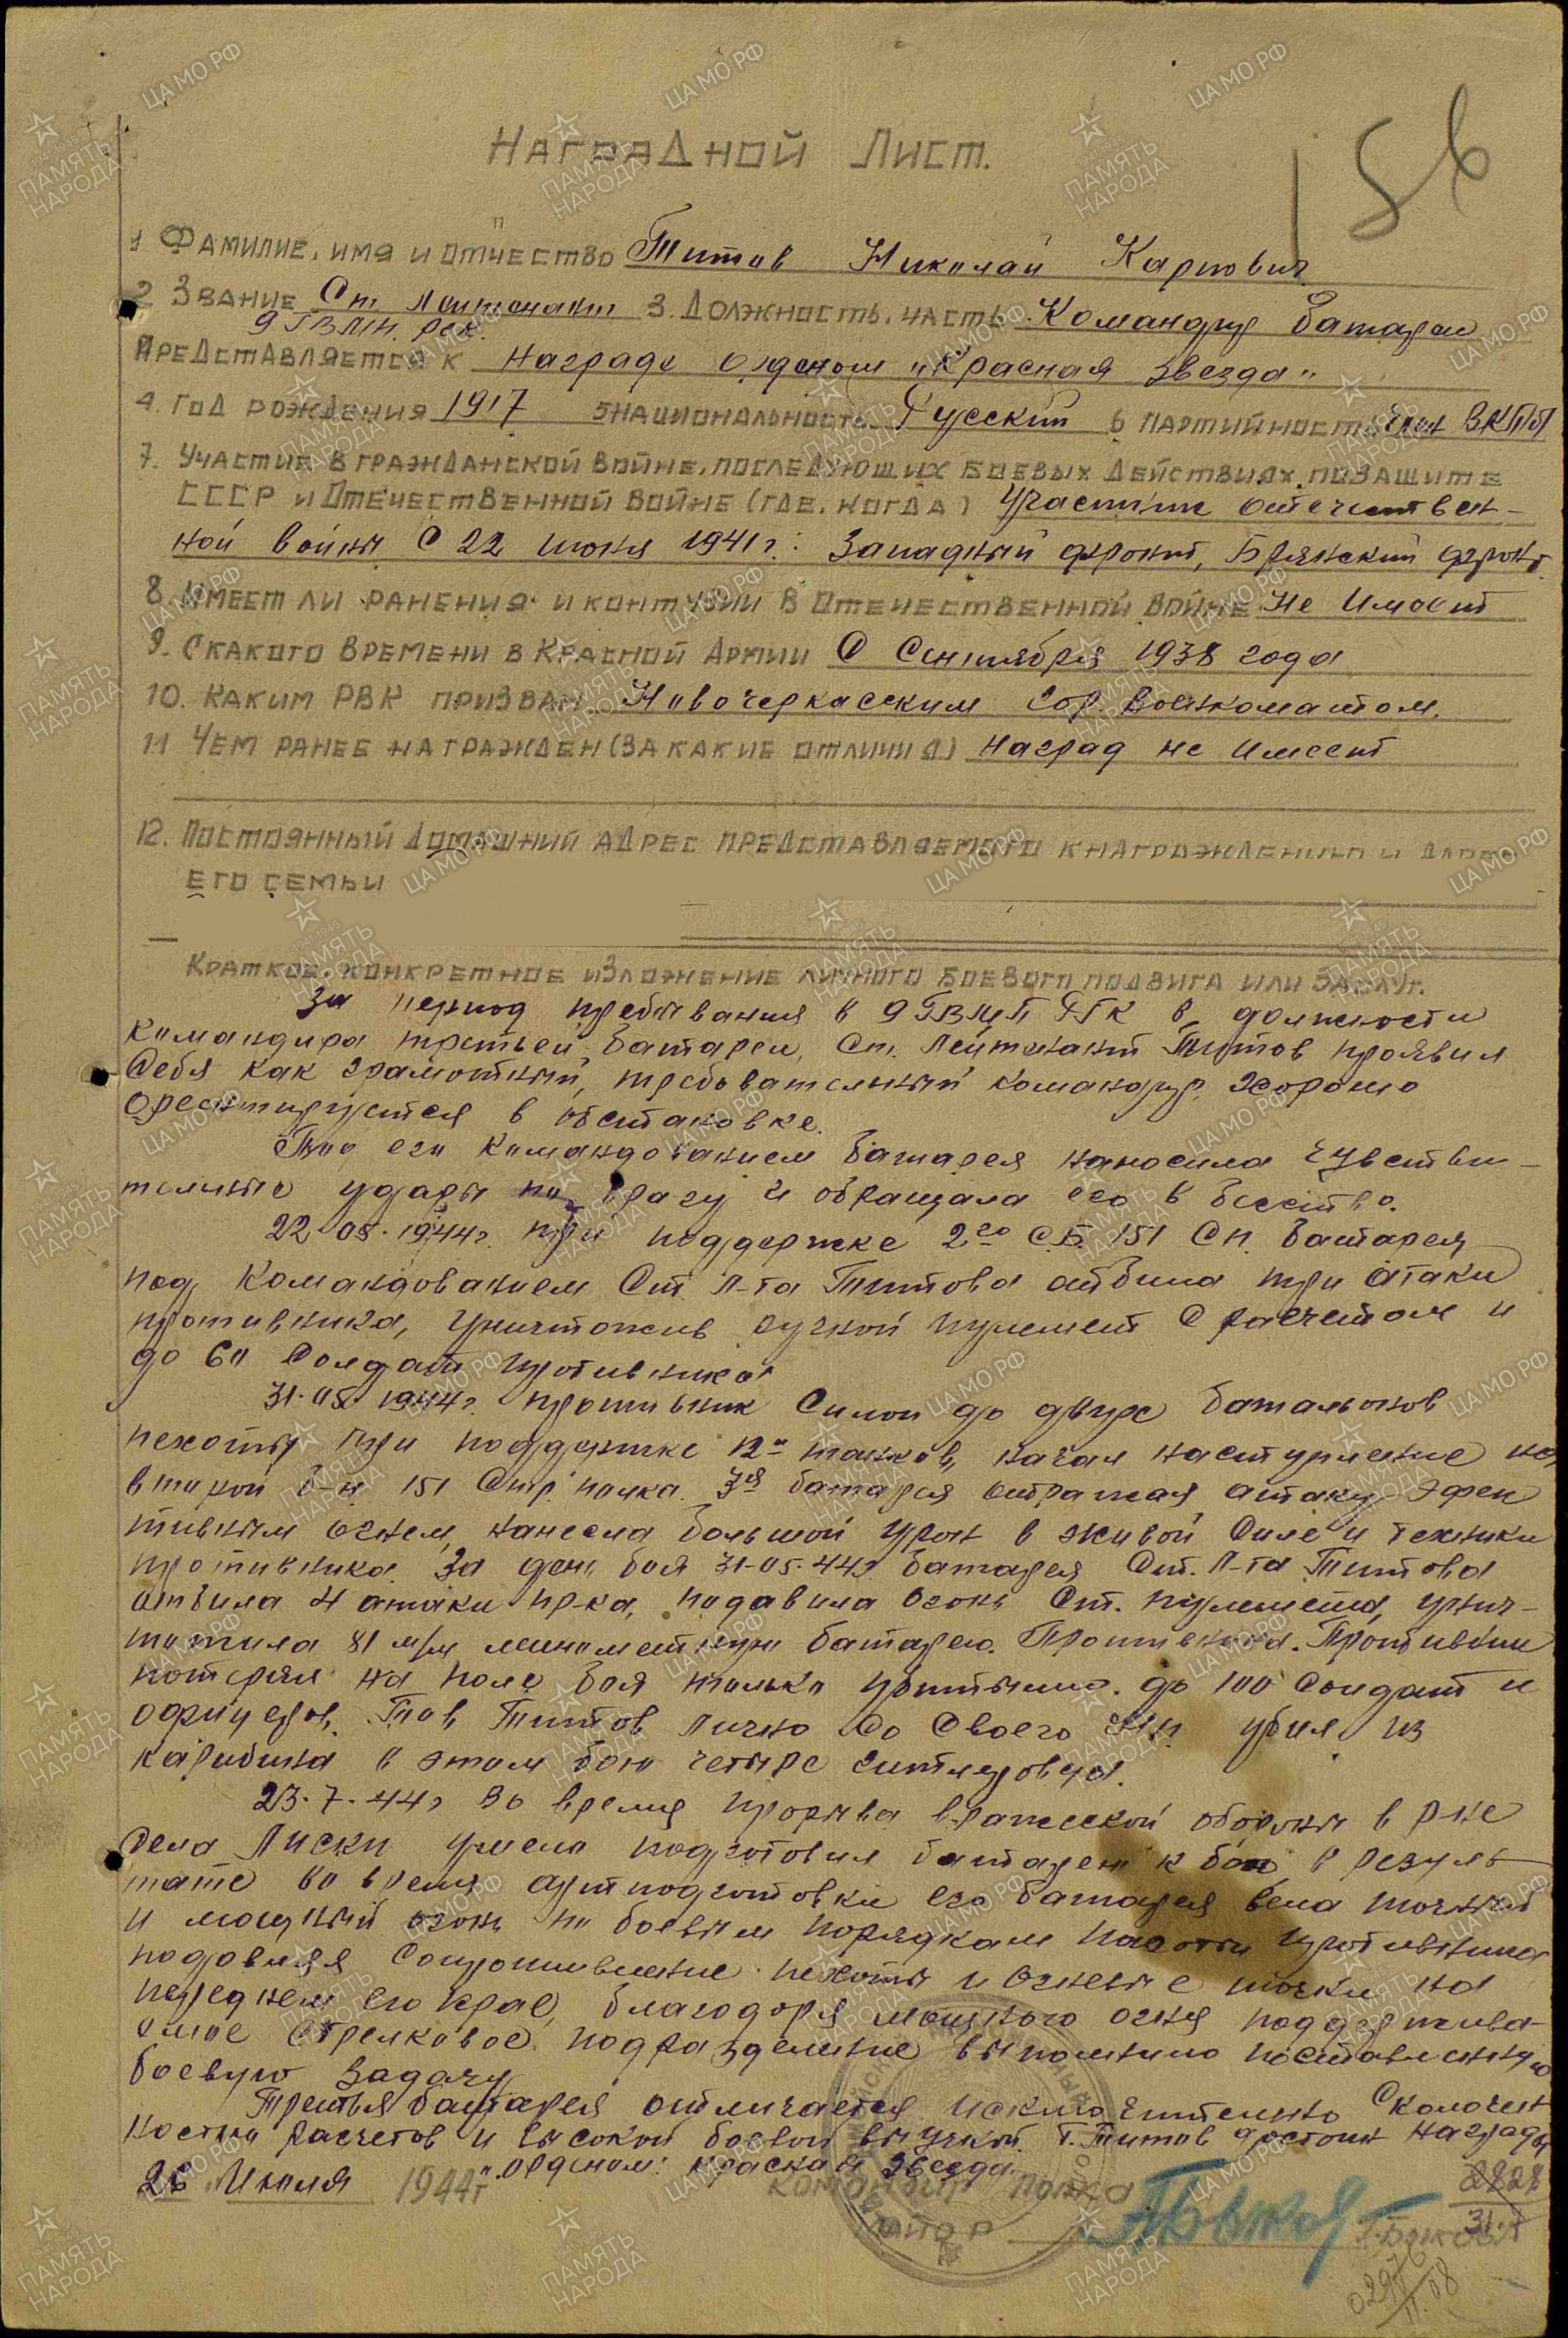 156
Наградной Лист.
1 Фамилие, имя и отчество Титов Николай Карпович
2 Звание Ст. лейтенант 3. Должность, часть Командир батареи
9 ГВ МП. РГК.
Представляется к награде орденом „Красная звезда"
4. Год рождения 1917 5 национальность Русский 6 партийность Член ВКПб
7. Участие в гражданской войне, последующих боевых действиях по защите
СССР и Отечественной войне (где, когда) Участник отечествен-
ной войны с 22 июня 1941 г: Западный фронт, Брянский фронт.
8. Имеет ли ранения и контузии в Отечественной войне Не имеет
9. С какого времени в Красной Армии С Сентября 1938 года
10. Каким РВК призван Новочеркасским Гор. военкоматом.
11 Чем ранее награжден (за какие отличия) Наград не имеет
12. Постоянный домашний адрес представляемого к награждению и адрес
его семьи
Краткое, конкретное изложение личного боевого подвига или заслуг.
За период пребывания в 9 ГВМП РГК в должности
командира третьей батареи, Ст. Лейтенант Титов проявил
себя как грамотный, требовательный командир, хорошо
ореентируется в обстановке.
Под его командованием батарея наносила чувстви-
тельные удары по врагу и обращала его в бегство.
22.05.1944г. при поддержке 2го С.Б. 151 Сп. батарея
под командованием Ст. Л-та Титова отбила три атаки
противника, уничтожив ручной пулемет с расчетом и
до 60 солдат противника
31.05.1944г. противник силой до двух батальонов
пехоты при поддержке 12и танков, начал наступление на
второй б-н 151 Стр. полка. 3я батарея отражая атаку эфек
тивным огнем, нанесла большой урон в живой силе и технике
противника. За день боя 31-05-44г. батарея Ст. Л-та Титова
отбила 4 атаки пр-ка, подавила огонь Ст. пулемета, унич-
тожила 81 м/м минометную батарею. Противника. Противник
потерял на поле боя только убитыми до 100 солдат и
офицеров. Тов. Титов лично со своего НП убил из
карабина в этом бою четыре гитлеровца.
23.7.44г во время прорыва вражеской обороны в р-не
села Лиски умело подготовил батарею к бою в резуль
тате во время артподготовки его батарея вела точный
и мощный огонь по боевым порядкам пехоты противника
подовляя сопротивление пехоты и огневые точки на
переднем его крае, благодоря мощного огня поддержива-
емое стрелковое подразделение выполнило поставленную
боевую задачу
Третья батарея отличается исключительно сколочен
ностью расчетов и высокой боевой выучкой. Т. Титов достоин награды
орденом: „Красная звезда".
26 Июля 1944г Командир полка
Майор
2828
31.7
0297
11.08